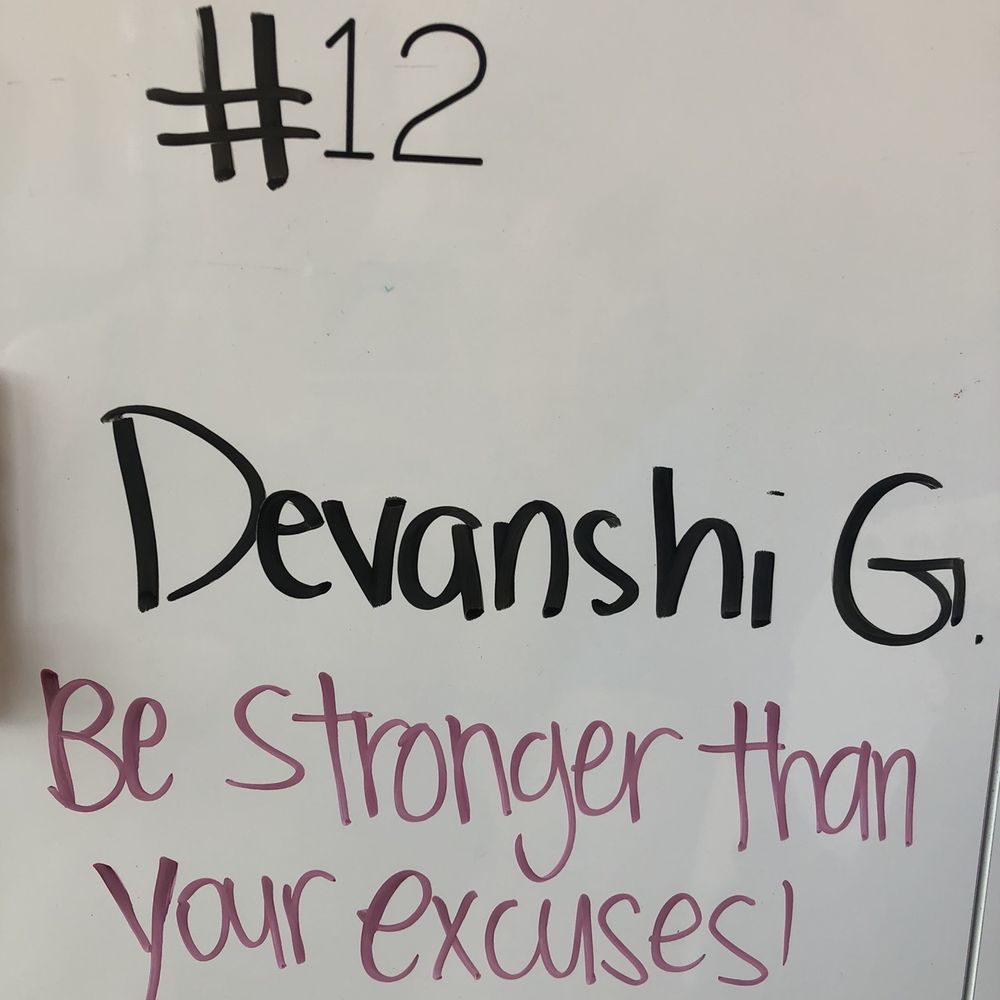 #12
Devanshi G.
Be stronger than
your excuses!